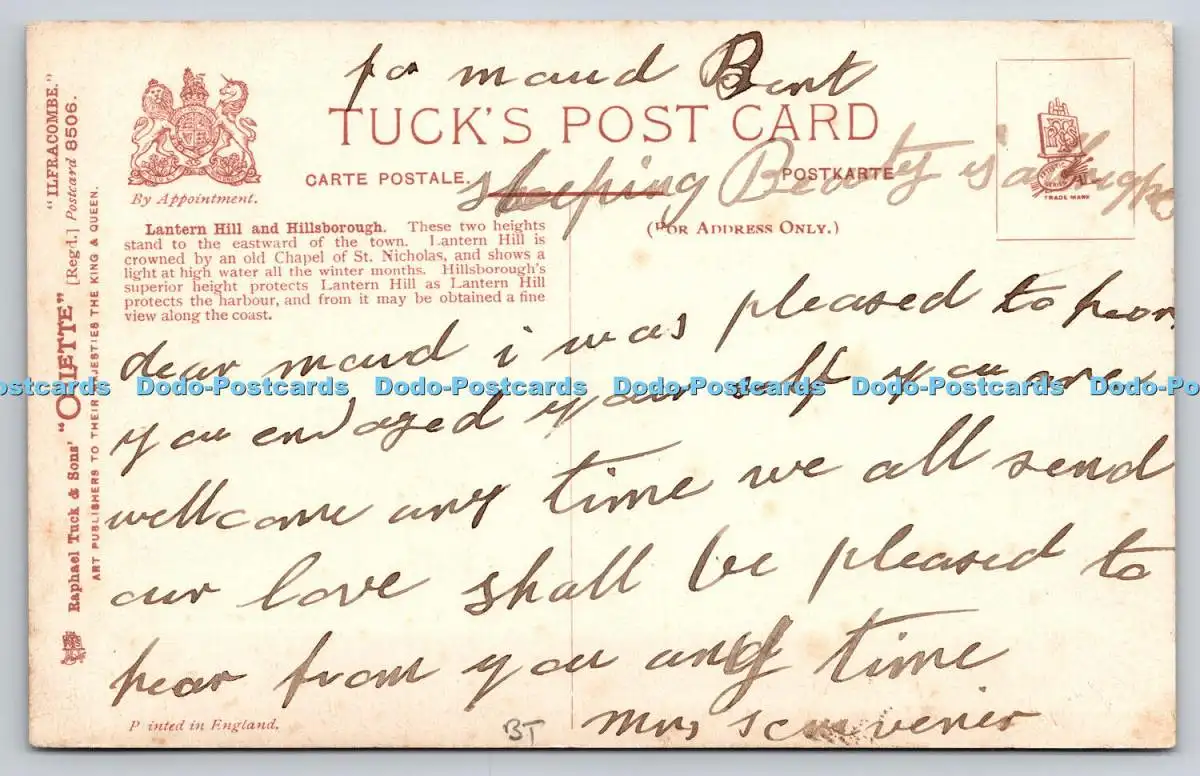 for maud Bent
TUCK'S POST CARD
CARTE POSTALE.
POSTKARTE
sleeping Beauty is a
By Appointment.
(FOR ADDRESS ONLY.)
TRADE MARK
Lantern Hill and Hillsborough. These two heights
stand to the eastward of the town. Lantern Hill is
crowned by an old Chapel of St. Nicholas, and shows a
light at high water all the winter months. Hillsborough's
superior height protects Lantern Hill as Lantern Hill
protects the harbour, and from it may be obtained a fine
view along the coast.
dear maud i was pleased to hear
you endoyed your self you are
wellcome any time we all send
our love shall be pleased to
hear from you any time
mrs
Printed in England.
BT
"ILFRACOMBE."
Raphael Tuck & Sons' "OILETTE" [Regd.] Postcard 8506.
ART PUBLISHERS TO THEIR MAJESTIES THE KING & QUEEN.
Dodo-Postcards Dodo-Postcards Dodo-Postcards Dodo-Postcards Dodo-Postcards